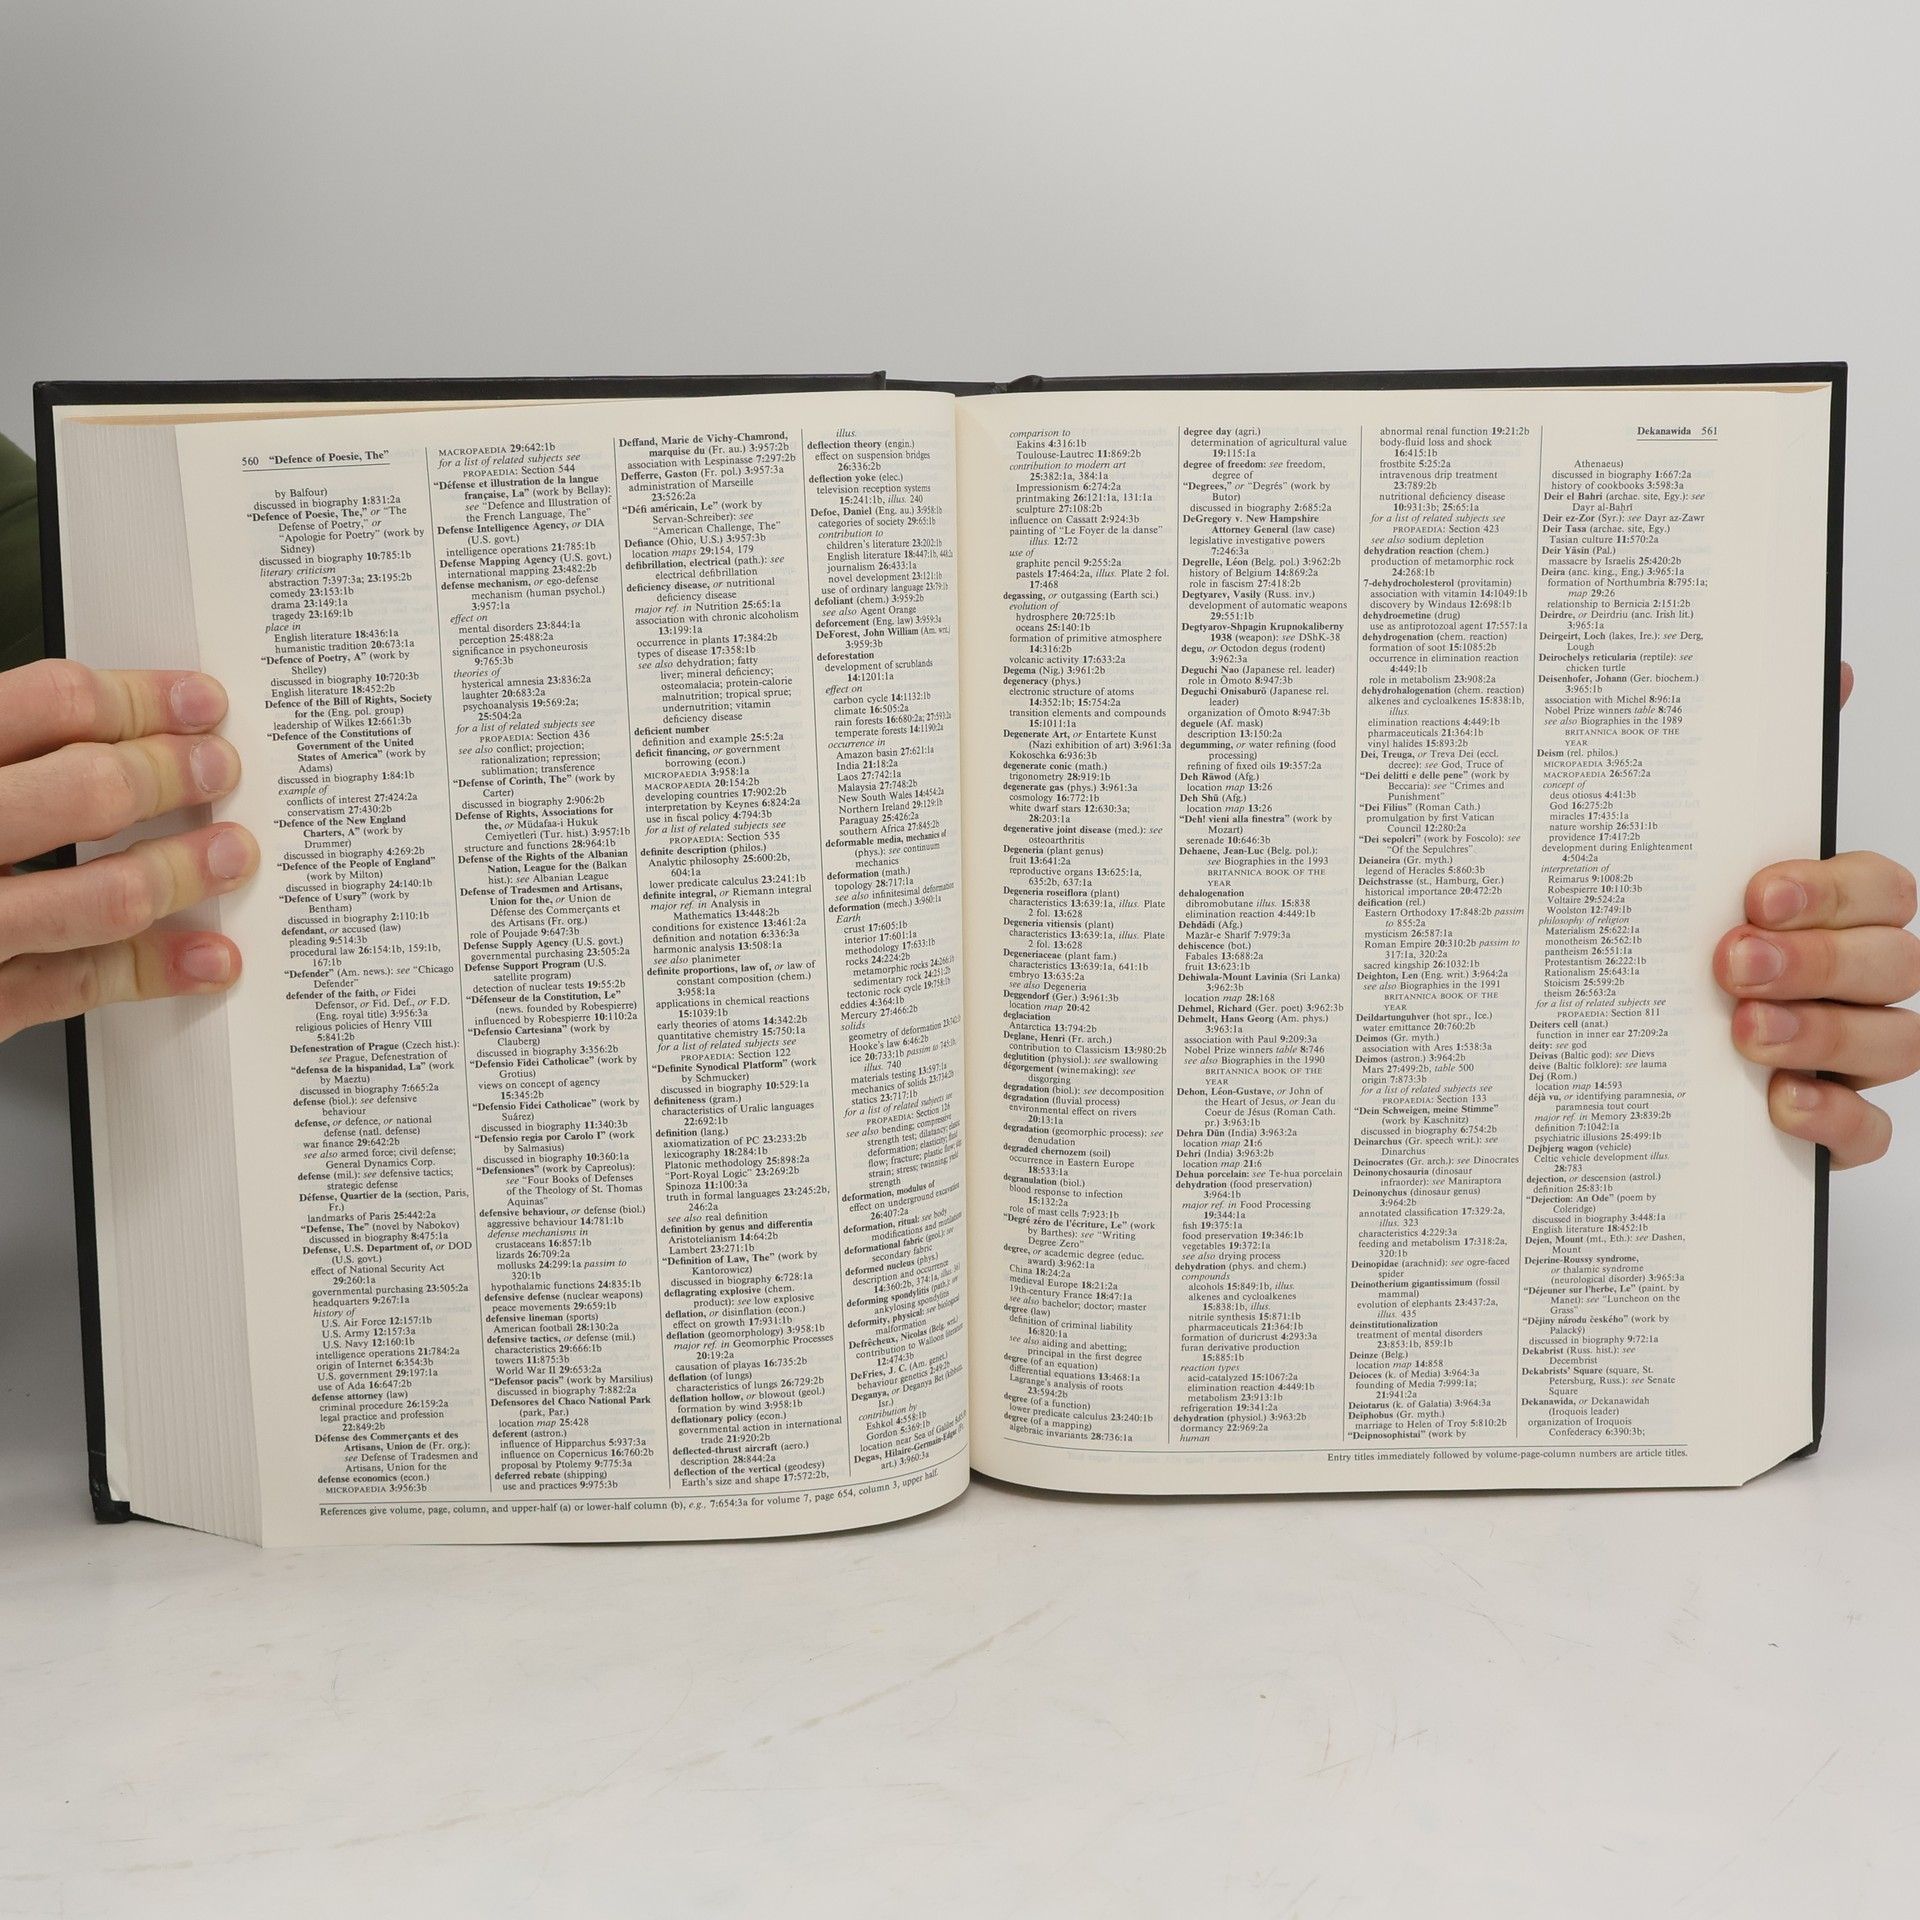 560 “Defence of Poesie, The”
by Balfour)
discussed in biography 1:831:2a
“Defence of Poesie, The,” or “The
Defense of Poetry,” or
“Apologie for Poetry” (work by
Sidney)
discussed in biography 10:785:1b
literary criticism
abstraction 7:397:3a; 23:195:2b
comedy 23:153:1b
drama 23:149:1a
tragedy 23:169:1b
place in
English literature 18:436:1a
humanistic tradition 20:673:1a
“Defence of Poetry, A” (work by
Shelley)
discussed in biography 10:720:3b
English literature 18:452:2b
Defence of the Bill of Rights, Society
for the (Eng. pol. group)
leadership of Wilkes 12:661:3b
“Defence of the Constitutions of
Government of the United
States of America” (work by
Adams)
discussed in biography 1:84:1b
example of
conflicts of interest 27:424:2a
conservatism 27:430:2b
“Defence of the New England
Charters, A” (work by
Drummer)
discussed in biography 4:269:2b
“Defence of the People of England”
(work by Milton)
discussed in biography 24:140:1b
“Defence of Usury” (work by
Bentham)
discussed in biography 2:110:1b
defendant, or accused (law)
pleading 9:514:3b
procedural law 26:154:1b, 159:1b,
167:1b
“Defender” (Am. news.): see “Chicago
Defender”
defender of the faith, or Fidei
Defensor, or Fid. Def., or F.D.
(Eng. royal title) 3:956:3a
religious policies of Henry VIII
5:841:2b
Defenestration of Prague (Czech hist.):
see Prague, Defenestration of
“defensa de la hispanidad, La” (work
by Maeztu)
discussed in biography 7:665:2a
defense (biol.): see defensive
behaviour
defense, or defence, or national
defense (natl. defense)
war finance 29:642:2b
see also armed force; civil defense;
General Dynamics Corp.
defense (mil.): see defensive tactics;
strategic defense
Défense, Quartier de la (section, Paris,
Fr.)
landmarks of Paris 25:442:2a
“Defense, The” (novel by Nabokov)
discussed in biography 8:475:1a
Defense, U.S. Department of, or DOD
(U.S. govt.)
effect of National Security Act
29:260:1a
governmental purchasing 23:505:2a
headquarters 9:267:1a
history of
U.S. Air Force 12:157:1b
U.S. Army 12:157:3a
U.S. Navy 12:160:1b
intelligence operations 21:784:2a
origin of Internet 6:354:3b
U.S. government 29:197:1a
use of Ada 16:647:2b
defense attorney (law)
criminal procedure 26:159:2a
legal practice and profession
22:849:2b
Défense des Commerçants et des
Artisans, Union de (Fr. org.):
see Defense of Tradesmen and
Artisans, Union for the
defense economics (econ.)
MICROPAEDIA 3:956:3b
MACROPAEDIA 29:642:1b
for a list of related subjects see
PROPAEDIA: Section 544
“Défense et illustration de la langue
française, La” (work by Bellay):
see “Defence and Illustration of
the French Language, The”
Defense Intelligence Agency, or DIA
(U.S. govt.)
intelligence operations 21:785:1b
Defense Mapping Agency (U.S. govt.)
international mapping 23:482:2b
defense mechanism, or ego-defense
mechanism (human psychol.)
3:957:1a
effect on
mental disorders 23:844:1a
perception 25:488:2a
significance in psychoneurosis
9:765:3b
theories of
hysterical amnesia 23:836:2a
laughter 20:683:2a
psychoanalysis 19:569:2a;
25:504:2a
for a list of related subjects see
PROPAEDIA: Section 436
see also conflict; projection;
rationalization; repression;
sublimation; transference
“Defense of Corinth, The” (work by
Carter)
discussed in biography 2:906:2b
Defense of Rights, Associations for
the, or Müdafaa-i Hukuk
Cemiyetleri (Tur. hist.) 3:957:1b
structure and functions 28:964:1b
Defense of the Rights of the Albanian
Nation, League for the (Balkan
hist.): see Albanian League
Defense of Tradesmen and Artisans,
Union for the, or Union de
Défense des Commerçants et
des Artisans (Fr. org.)
role of Poujade 9:647:3b
Defense Supply Agency (U.S. govt.)
governmental purchasing 23:505:2a
Defense Support Program (U.S.
satellite program)
detection of nuclear tests 19:55:2b
“Défenseur de la Constitution, Le”
(news. founded by Robespierre)
influenced by Robespierre 10:110:2a
“Defensio Cartesiana” (work by
Clauberg)
discussed in biography 3:356:2b
“Defensio Fidei Catholicae” (work by
Grotius)
views on concept of agency
15:345:2b
“Defensio Fidei Catholicae” (work by
Suárez)
discussed in biography 11:340:3b
“Defensio regia pro Carolo I” (work
by Salmasius)
discussed in biography 10:360:1a
“Defensiones” (work by Capreolus):
see “Four Books of Defenses
of the Theology of St. Thomas
Aquinas”
defensive behaviour, or defense (biol.)
aggressive behaviour 14:781:1b
defense mechanisms in
crustaceans 16:857:1b
lizards 26:709:2a
mollusks 24:299:1a passim to
320:1b
hypothalamic functions 24:835:1b
defensive defense (nuclear weapons)
peace movements 29:659:1b
defensive lineman (sports)
American football 28:130:2a
defensive tactics, or defense (mil.)
characteristics 29:666:1b
towers 11:875:3b
World War II 29:653:2a
“Defensor pacis” (work by Marsilius)
discussed in biography 7:882:2a
Defensores del Chaco National Park
(park, Par.)
location map 25:428
deferent (astron.)
influence of Hipparchus 5:937:3a
influence on Copernicus 16:760:2b
proposal by Ptolemy 9:775:3a
deferred rebate (shipping)
use and practices 9:975:3b
Deffand, Marie de Vichy-Chamrond,
marquise du (Fr. au.) 3:957:2b
association with Lespinasse 7:297:2b
Defferre, Gaston (Fr. pol.) 3:957:3a
administration of Marseille
23:526:2a
“Défi américain, Le” (work by
Servan-Schreiber): see
“American Challenge, The”
Defiance (Ohio, U.S.) 3:957:3b
location maps 29:154, 179
defibrillation, electrical (path.): see
electrical defibrillation
deficiency disease, or nutritional
deficiency disease
major ref. in Nutrition 25:65:1a
association with chronic alcoholism
13:199:1a
occurrence in plants 17:384:2b
types of disease 17:358:1b
see also dehydration; fatty
liver; mineral deficiency;
osteomalacia; protein-calorie
malnutrition; tropical sprue;
undernutrition; vitamin
deficiency disease
deficient number
definition and example 25:5:2a
deficit financing, or government
borrowing (econ.)
MICROPAEDIA 3:958:1a
MACROPAEDIA 20:154:2b
developing countries 17:902:2b
interpretation by Keynes 6:824:2a
use in fiscal policy 4:794:3b
for a list of related subjects see
PROPAEDIA: Section 535
definite description (philos.)
Analytic philosophy 25:600:2b,
604:1a
lower predicate calculus 23:241:1b
definite integral, or Riemann integral
major ref. in Analysis in
Mathematics 13:448:2b
conditions for existence 13:461:2a
definition and notation 6:336:3a
harmonic analysis 13:508:1a
see also planimeter
definite proportions, law of, or law of
constant composition (chem.)
3:958:1a
applications in chemical reactions
15:1039:1b
early theories of atoms 14:342:2b
quantitative chemistry 15:750:1a
for a list of related subjects see
PROPAEDIA: Section 122
“Definite Synodical Platform” (work
by Schmucker)
discussed in biography 10:529:1a
definiteness (gram.)
characteristics of Uralic languages
22:692:1b
definition (lang.)
axiomatization of PC 23:233:2b
lexicography 18:284:1b
Platonic methodology 25:898:2a
“Port-Royal Logic” 23:269:2b
Spinoza 11:100:3a
truth in formal languages 23:245:2b,
246:2a
see also real definition
definition by genus and differentia
Aristotelianism 14:64:2b
Lambert 23:271:1b
“Definition of Law, The” (work by
Kantorowicz)
discussed in biography 6:728:1a
deflagrating explosive (chem.
product): see low explosive
deflation, or disinflation (econ.)
effect on growth 17:931:1b
deflation (geomorphology) 3:958:1b
major ref. in Geomorphic Processes
20:19:2a
causation of playas 16:735:2b
deflation (of lungs)
characteristics of lungs 26:729:2b
deflation hollow, or blowout (geol.)
formation by wind 3:958:1b
deflationary policy (econ.)
governmental action in international
trade 21:920:2b
deflected-thrust aircraft (aero.)
description 28:844:2a
deflection of the vertical (geodesy)
Earth's size and shape 17:572:2b,
illus.
deflection theory (engin.)
effect on suspension bridges
26:336:2b
deflection yoke (elec.)
television reception systems
15:241:1b, illus. 240
Defoe, Daniel (Eng. au.) 3:958:1b
categories of society 29:65:1b
contribution to
children's literature 23:202:1b
English literature 18:447:1b,
journalism 26:433:1a
novel development 23:121:1b
use of ordinary language
defoliant (chem.) 3:959:2b
see also Agent Orange
deforcement (Eng. law) 3:959:3a
DeForest, John William (Am. wri.)
3:959:3b
deforestation
development of scrublands
14:1201:1a
effect on
carbon cycle 14:1132:1b
climate 16:505:2a
rain forests 16:680:2a;
temperate forests 14:1190:2a
occurrence in
Amazon basin 27:621:1a
India 21:18:2a
Laos 27:742:1a
Malaysia 27:748:2b
New South Wales 14:454:2a
Northern Ireland 29:129:1b
Paraguay 25:426:2a
southern Africa 27:845:2b
deformable media, mechanics of
(phys.): see continuum
mechanics
deformation (math.)
topology 28:717:1a
see also infinitesimal deformation
deformation (mech.) 3:960:1a
Earth
crust 17:605:1b
interior 17:601:1a
methodology 17:633:1b
rocks 24:224:2b
metamorphic rocks
sedimentary rock 24:251:2b
tectonic rock cycle 19:758:1b
eddies 4:364:1b
Mercury 27:466:2b
solids
geometry of deformation
Hooke's law 6:46:2b
ice 20:733:1b passim to
illus. 740
materials testing 13:597:1a
mechanics of solids 23:734:2b
statics 23:717:1b
for a list of related subjects see
PROPAEDIA: Section 126
see also bending; compressive
strength test; dilatancy;
deformation; elasticity;
flow; fracture; plastic
strain; stress; twinning;
strength
deformation, modulus of
effect on underground excavation
26:407:2a
deformation, ritual: see body
modifications and mutilations
deformational fabric (geol.): see
secondary fabric
deformed nucleus (phys.)
description and occurrence
14:360:2b, 374:1a, illus.
deforming spondylitis (path.): see
ankylosing spondylitis
deformity, physical: see biological
malformation
Defrêcheux, Nicolas (Belg. wri.)
contribution to Walloon literature
12:474:3b
DeFries, J. C. (Am. genet.)
behaviour genetics 2:49:2b
Deganya, or Deganya Bet (kibbutz,
Isr.)
contribution by
Eshkol 4:558:1b
Gordon 5:369:1b
location near Sea of Galilee
Degas, Hilaire-Germain-Edgar (Fr.
art.) 3:960:3a
References give volume, page, column, and upper-half (a) or lower-half column (b), e.g., 7:654:3a for volume 7, page 654, column 3, upper half.
Dekanawida 561
comparison to
Eakins 4:316:1b
Toulouse-Lautrec 11:869:2b
contribution to modern art
25:382:1a, 384:1a
Impressionism 6:274:2a
printmaking 26:121:1a, 131:1a
sculpture 27:108:2b
influence on Cassatt 2:924:3b
painting of “Le Foyer de la danse”
illus. 12:72
use of
graphite pencil 9:255:2a
pastels 17:464:2a, illus. Plate 2 fol.
17:468
degassing, or outgassing (Earth sci.)
evolution of
hydrosphere 20:725:1b
oceans 25:140:1b
formation of primitive atmosphere
14:316:2b
volcanic activity 17:633:2a
Degema (Nig.) 3:961:2b
degeneracy (phys.)
electronic structure of atoms
14:352:1b; 15:754:2a
transition elements and compounds
15:1011:1a
Degenerate Art, or Entartete Kunst
(Nazi exhibition of art) 3:961:3a
Kokoschka 6:936:3b
degenerate conic (math.)
trigonometry 28:919:1b
degenerate gas (phys.) 3:961:3a
cosmology 16:772:1b
white dwarf stars 12:630:3a;
28:203:1a
degenerative joint disease (med.): see
osteoarthritis
Degeneria (plant genus)
fruit 13:641:2a
reproductive organs 13:625:1a,
635:2b, 637:1a
Degeneria roseiflora (plant)
characteristics 13:639:1a, illus. Plate
2 fol. 13:628
Degeneria vitiensis (plant)
characteristics 13:639:1a, illus. Plate
2 fol. 13:628
Degeneriaceae (plant fam.)
characteristics 13:639:1a, 641:1b
embryo 13:635:2a
see also Degeneria
Deggendorf (Ger.) 3:961:3b
location map 20:42
deglaciation
Antarctica 13:794:2b
Deglane, Henri (Fr. arch.)
contribution to Classicism 13:980:2b
deglutition (physiol.): see swallowing
dégorgement (winemaking): see
disgorging
degradation (biol.): see decomposition
degradation (fluvial process)
environmental effect on rivers
20:13:1a
degradation (geomorphic process): see
denudation
degraded chernozem (soil)
occurrence in Eastern Europe
18:533:1a
degranulation (biol.)
blood response to infection
15:132:2a
role of mast cells 7:923:1b
“Degré zéro de l'écriture, Le” (work
by Barthes): see “Writing
Degree Zero”
degree, or academic degree (educ.
award) 3:962:1a
China 18:24:2a
medieval Europe 18:21:2a
19th-century France 18:47:1a
see also bachelor; doctor; master
degree (law)
definition of criminal liability
16:820:1a
see also aiding and abetting;
principal in the first degree
degree (of an equation)
differential equations 13:468:1a
Lagrange's analysis of roots
23:594:2b
degree (of a function)
lower predicate calculus 23:240:1b
degree (of a mapping)
algebraic invariants 28:736:1a
degree day (agri.)
determination of agricultural value
19:115:1a
degree of freedom: see freedom,
degree of
“Degrees,” or “Degrés” (work by
Butor)
discussed in biography 2:685:2a
DeGregory v. New Hampshire
Attorney General (law case)
legislative investigative powers
7:246:3a
Degrelle, Léon (Belg. pol.) 3:962:2b
history of Belgium 14:869:2a
role in fascism 27:418:2b
Degtyarev, Vasily (Russ. inv.)
development of automatic weapons
29:551:1b
Degtyarov-Shpagin Krupnokaliberny
1938 (weapon): see DShK-38
degu, or Octodon degus (rodent)
3:962:3a
Deguchi Nao (Japanese rel. leader)
role in Ōmoto 8:947:3b
Deguchi Onisaburō (Japanese rel.
leader)
organization of Ōmoto 8:947:3b
deguele (Af. mask)
description 13:150:2a
degumming, or water refining (food
processing)
refining of fixed oils 19:357:2a
Deh Rāwod (Afg.)
location map 13:26
Deh Shū (Afg.)
location map 13:26
“Deh! vieni alla finestra” (work by
Mozart)
serenade 10:646:3b
Dehaene, Jean-Luc (Belg. pol.):
see Biographies in the 1993
BRITANNICA BOOK OF THE
YEAR
dehalogenation
dibromobutane illus. 15:838
elimination reaction 4:449:1b
Dehdādi (Afg.)
Mazār-e Sharīf 7:979:3a
dehiscence (bot.)
Fabales 13:688:2a
fruit 13:623:1b
Dehiwala-Mount Lavinia (Sri Lanka)
3:962:3b
location map 28:168
Dehmel, Richard (Ger. poet) 3:962:3b
Dehmelt, Hans Georg (Am. phys.)
3:963:1a
association with Paul 9:209:3a
Nobel Prize winners table 8:746
see also Biographies in the 1990
BRITANNICA BOOK OF THE
YEAR
Dehon, Léon-Gustave, or John of
the Heart of Jesus, or Jean du
Coeur de Jésus (Roman Cath.
pr.) 3:963:1b
Dehra Dūn (India) 3:963:2a
location map 21:6
Dehri (India) 3:963:2b
location map 21:6
Dehua porcelain: see Te-hua porcelain
dehydration (food preservation)
3:964:1b
major ref. in Food Processing
19:344:1a
fish 19:375:1a
food preservation 19:346:1b
vegetables 19:372:1a
see also drying process
dehydration (phys. and chem.)
compounds
alcohols 15:849:1b, illus.
alkenes and cycloalkenes
15:838:1b, illus.
nitrile synthesis 15:871:1b
pharmaceuticals 21:364:1b
formation of duricrust 4:293:3a
furan derivative production
15:885:1b
reaction types
acid-catalyzed 15:1067:2a
elimination reaction 4:449:1b
metabolism 23:913:1b
refrigeration 19:341:2a
dehydration (physiol.) 3:963:2b
dormancy 22:969:2a
human
abnormal renal function 19:21:2b
body-fluid loss and shock
16:415:1b
frostbite 5:25:2a
intravenous drip treatment
23:789:2b
nutritional deficiency disease
10:931:3b; 25:65:1a
for a list of related subjects see
PROPAEDIA: Section 423
see also sodium depletion
dehydration reaction (chem.)
production of metamorphic rock
24:268:1b
7-dehydrocholesterol (provitamin)
association with vitamin 14:1049:1b
discovery by Windaus 12:698:1b
dehydroemetine (drug)
use as antiprotozoal agent 17:557:1a
dehydrogenation (chem. reaction)
formation of soot 15:1085:2b
occurrence in elimination reaction
4:449:1b
role in metabolism 23:908:2a
dehydrohalogenation (chem. reaction)
alkenes and cycloalkenes 15:838:1b,
illus.
elimination reactions 4:449:1b
pharmaceuticals 21:364:1b
vinyl halides 15:893:2b
Dei, Treuga, or Treva Dei (eccl.
decree): see God, Truce of
“Dei delitti e delle pene” (work by
Beccaria): see “Crimes and
Punishment”
“Dei Filius” (Roman Cath.)
promulgation by first Vatican
Council 12:280:2a
“Dei sepolcri” (work by Foscolo): see
“Of the Sepulchres”
Deianeira (Gr. myth.)
legend of Heracles 5:860:3b
Deichstrasse (st., Hamburg, Ger.)
historical importance 20:472:2b
deification (rel.)
Eastern Orthodoxy 17:848:2b passim
to 855:2a
mysticism 26:587:1a
Roman Empire 20:310:2b passim to
317:1a, 320:2a
sacred kingship 26:1032:1b
Deighton, Len (Eng. writ.) 3:964:2a
see also Biographies in the 1991
BRITANNICA BOOK OF THE
YEAR
Deildartunguhver (hot spr., Ice.)
water emittance 20:760:2b
Deimos (Gr. myth.)
association with Ares 1:538:3a
Deimos (astron.) 3:964:2b
Mars 27:499:2b, table 500
origin 7:873:3b
for a list of related subjects see
PROPAEDIA: Section 133
“Dein Schweigen, meine Stimme”
(work by Kaschnitz)
discussed in biography 6:754:2b
Deinarchus (Gr. speech writ.): see
Dinarchus
Deinocrates (Gr. arch.): see Dinocrates
Deinonychosauria (dinosaur
infraorder): see Maniraptora
Deinonychus (dinosaur genus)
3:964:2b
annotated classification 17:329:2a,
illus. 323
characteristics 4:229:3a
feeding and metabolism 17:318:2a,
320:1b
Deinopidae (arachnid): see ogre-faced
spider
Deinotherium gigantissimum (fossil
mammal)
evolution of elephants 23:437:2a,
illus. 435
deinstitutionalization
treatment of mental disorders
23:853:1b, 859:1b
Deinze (Belg.)
location map 14:858
Deioces (k. of Media) 3:964:3a
founding of Media 7:999:1a;
21:941:2a
Deiotarus (k. of Galatia) 3:964:3a
Deiphobus (Gr. myth.)
marriage to Helen of Troy 5:810:2b
“Deipnosophistai” (work by
Athenaeus)
discussed in biography 1:667:2a
history of cookbooks 3:598:3a
Deir el Bahri (archae. site, Egy.): see
Dayr al-Bahrī
Deir ez-Zor (Syr.): see Dayr az-Zawr
Deir Tasa (archae. site, Egy.)
Tasian culture 11:570:2a
Deir Yāsin (Pal.)
massacre by Israelis 25:420:2b
Deira (anc. king., Eng.) 3:965:1a
formation of Northumbria 8:795:1a;
map 29:26
relationship to Bernicia 2:151:2b
Deirdre, or Deirdriu (anc. Irish lit.)
3:965:1a
Deirgeirt, Loch (lakes, Ire.): see Derg,
Lough
Deirochelys reticularia (reptile): see
chicken turtle
Deisenhofer, Johann (Ger. biochem.)
3:965:1b
association with Michel 8:96:1a
Nobel Prize winners table 8:746
see also Biographies in the 1989
BRITANNICA BOOK OF THE
YEAR
Deism (rel. philos.)
MICROPAEDIA 3:965:2a
MACROPAEDIA 26:567:2a
concept of
deus otiosus 4:41:3b
God 16:275:2b
miracles 17:435:1a
nature worship 26:531:1b
providence 17:417:2b
development during Enlightenment
4:504:2a
interpretation of
Reimarus 9:1008:2b
Robespierre 10:110:3b
Voltaire 29:524:2a
Woolston 12:749:1b
philosophy of religion
Materialism 25:622:1a
monotheism 26:562:1b
pantheism 26:551:1a
Protestantism 26:222:1b
Rationalism 25:643:1a
Stoicism 25:599:2b
theism 26:563:2a
for a list of related subjects see
PROPAEDIA: Section 811
Deiters cell (anat.)
function in inner ear 27:209:2a
deity: see god
Deivas (Baltic god): see Dievs
deive (Baltic folklore): see lauma
Dej (Rom.)
location map 14:593
déjà vu, or identifying paramnesia, or
paramnesia tout court
major ref. in Memory 23:839:2b
definition 7:1042:1a
psychiatric illusions 25:499:1b
Dejbjerg wagon (vehicle)
Celtic vehicle development illus.
28:783
dejection, or descension (astrol.)
definition 25:83:1b
“Dejection: An Ode” (poem by
Coleridge)
discussed in biography 3:448:1a
English literature 18:452:1b
Dejen, Mount (mt., Eth.): see Dashen,
Mount
Dejerine-Roussy syndrome,
or thalamic syndrome
(neurological disorder) 3:965:3a
“Déjeuner sur l'herbe, Le” (paint. by
Manet): see “Luncheon on the
Grass”
“Dějiny národu českého” (work by
Palacký)
discussed in biography 9:72:1a
Dekabrist (Russ. hist.): see
Decembrist
Dekabrists' Square (square, St.
Petersburg, Russ.): see Senate
Square
Dekanawida, or Dekanawidah
(Iroquois leader)
organization of Iroquois
Confederacy 6:390:3b;
Entry titles immediately followed by volume-page-column numbers are article titles.